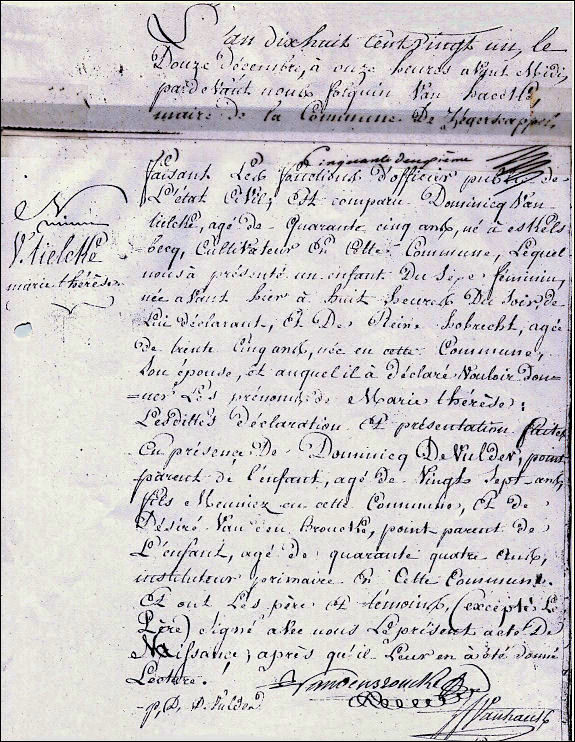 L'an dix huit cent vingt un, le
Douze décembre, à onze heures avant Midi,
par devant nous Van
maire de la Commune de Zegerscappel
cinquante deuxième
faisant Les fonctions d'officier public de
L'état Civil; Est comparu Dominicq Van
tielcke, agé de Quarante cinq ans, né à
becq, Cultivateur En Cette Commune, Lequel
nous à présenté un enfant Du Sexe féminin,
née avant hier à huit heures Du Soir, de
Lui déclarant, Et De Reine Lobrecht, agée
de trente Cinq ans, née en cette Commune,
Son épouse, et auquel il à déclaré Vouloir don-
=ner Les prénoms de Marie thérèse:
Lesdittes déclaration et présentation faites
En présence De Dominicq DeVulder, point
parent de l'enfant, agé de Vingt Sept ans,
fils Meunier en cette Commune, Et de
Désiré Van den Broucke, point parent de
L'enfant, agé de quarante quatre ans,
instituteur primaire En Cette Commune.
Et ont Les père et témoins, (excepté Le
Père) Signé avec nous Le présent acte De
Naissance, après qu'il Leur en à été donné
Lecture.
Vandenbroucke
p, D, D. Vulder
N
V. tielcke
marie thérèse